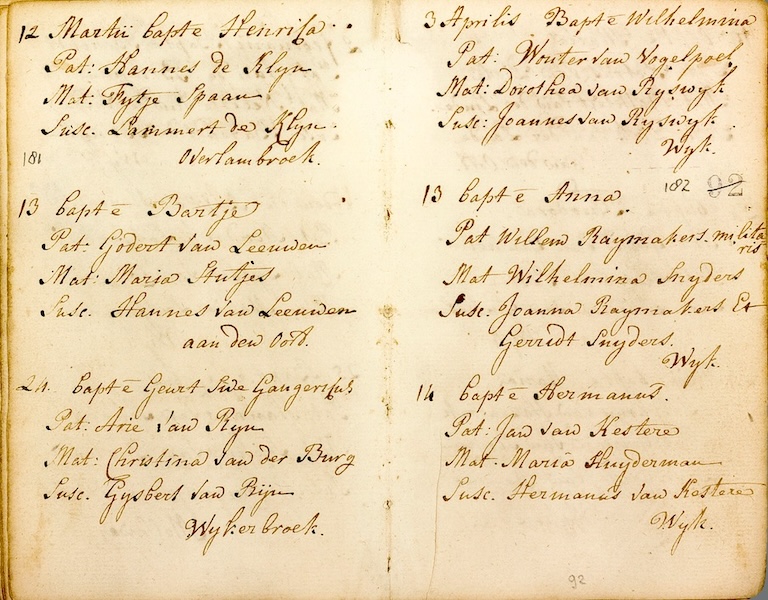 12 Martii bapt ē Henrica.
Pat: Hannes de Klyn
Mat: Fytje Spaan
Susc. Lammert de Klyn.
181 Overlambroek.
13 bapt ē Bartje
Pat: Godert van Leeuwen
Mat: Maria Stutjes
Susc. Hannes van Leeuwen
aan den Oord.
24. bapt ē Geurt sive Gaugericus
Pat: Arie van Ryn
Mat: Christina van der Burg
Susc. Gysbert van Rijn
Wykerbroek.
3 Aprilis Bapt ē Wilhelmina
Pat: Wouter van Vogelpoel
Mat: Dorothea van Ryswyk
Susc: Joannes van Ryswyk
Wyk.
182 92
13 bapt ē Anna
Pat Willem Raymakers. milita
ris
Mat Wilhelmina Snyders
Susc. Joanna Raymakers Et
Gerridt Snyders.
Wyk.
14 bapt ē Hermanus.
Pat: Jan van Kestere
Mat. Maria Huyderman
Susc. Hermanus van Kestere
Wyk.
92